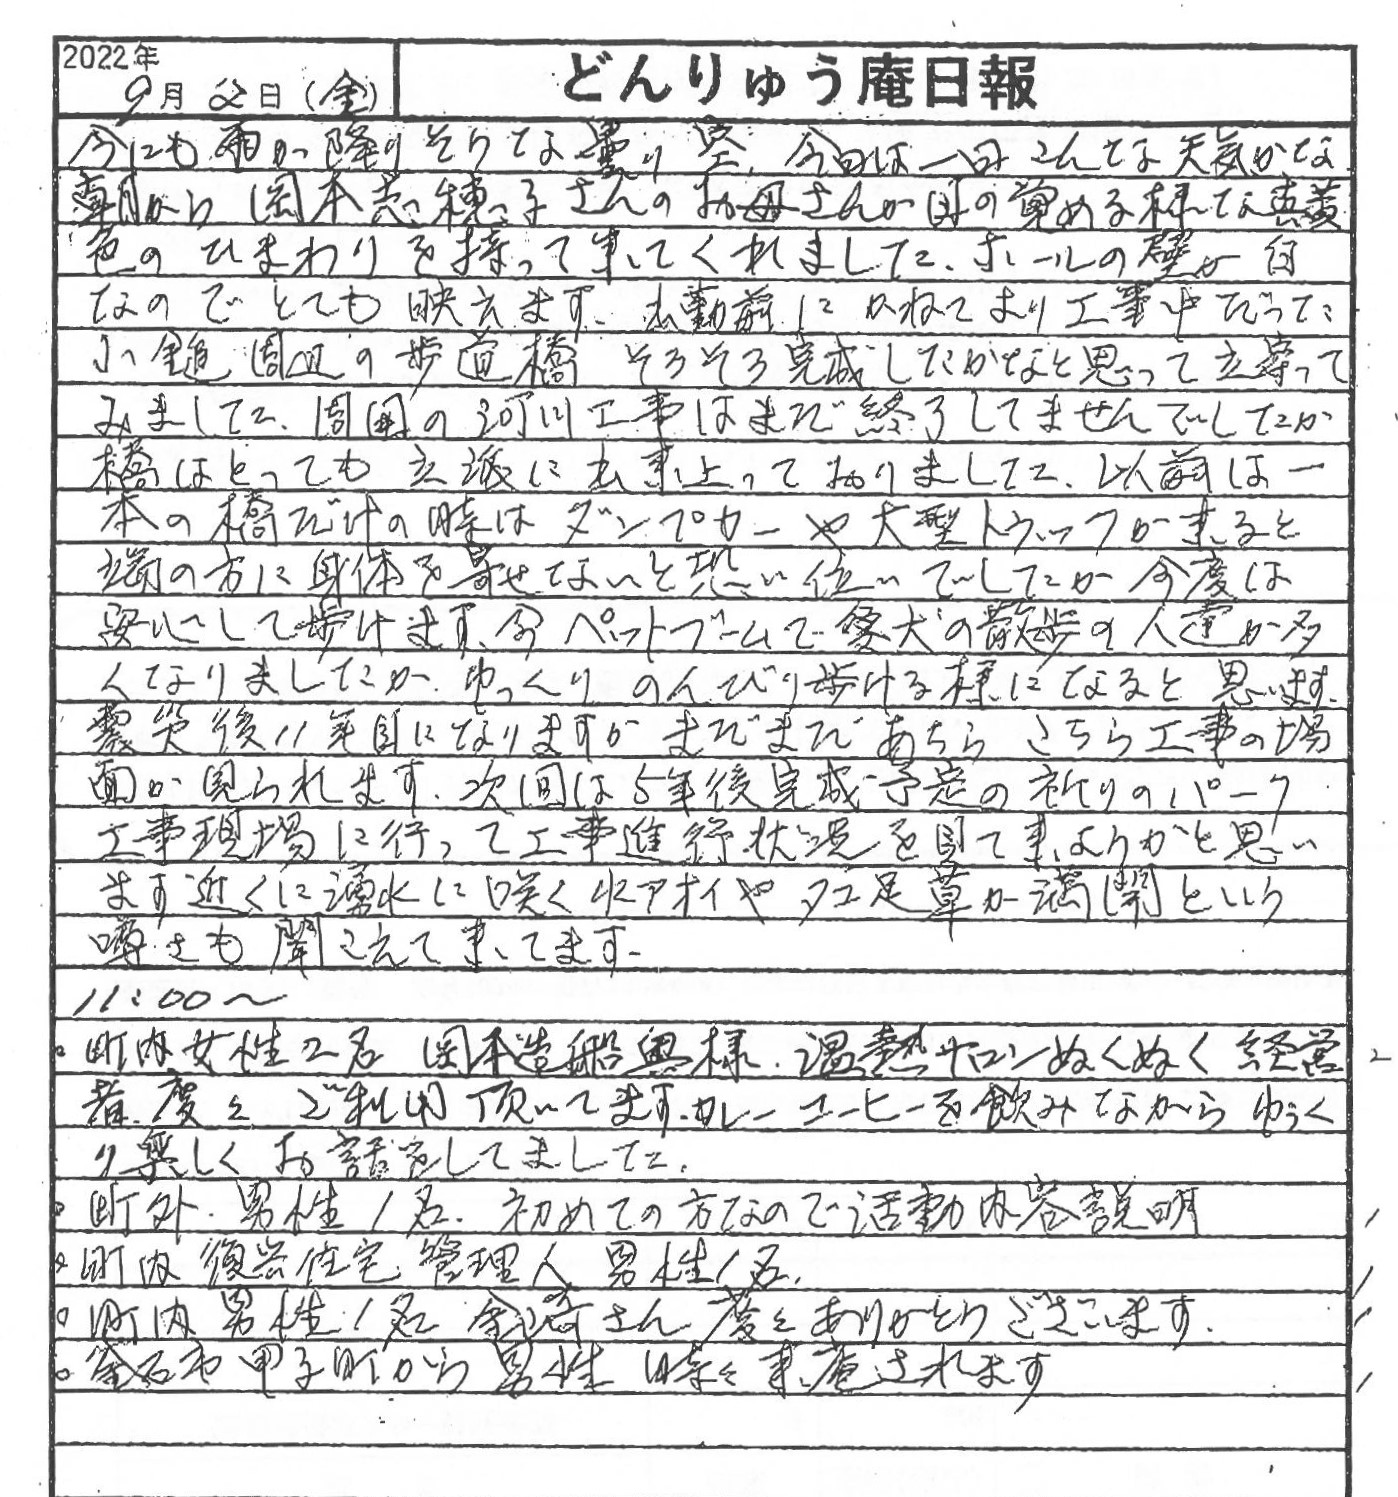 2022年
9月2日(金)
どんりゅう庵日報
今にも雨が降りそうな曇り空、今日は一日こんな天気かな
朝から岡本 さんのお母さんが目の覚める様な真黄
色のひまわりを持って来てくれました、ホールの壁が白
なのでとても映えます、出勤前にかねてより工事中だった
小鎚周辺の歩道橋 そろそろ完成したかなと思って立寄って
みました、周囲の河川工事はまだ終了してませんでしたが
橋はとっても立派に出来上っておりました、以前は一
本の橋だけの時はダンプカーや大型トラックが来ると
端の方に身体を寄せないと恐い位いでしたが今度は
安心して歩けます、今ペットブームで愛犬の散歩の人達が多
くなりましたが、ゆっくりのんびり歩ける様になると思います
震災後11年目になりますがまだまだあちらこちら工事の場
面が見られます、次回は5年後完成予定の祈りのパーク
工事現場に行って工事進行状況を見て来ようかと思い
ます近くに湧水に咲く水アオイやタコ足草が満開という
噂さも聞こえて来てます-
11:00〜
。町内女性2名 岡本造船奥様、温熱サロンぬくぬく経営 2
者、度々ご利用頂いてます、カレーコーヒーを飲みながらゆっく
り楽しくお話をしてました、
。町外、男性1名、初めての方なので活動内容説明 1
。町内復興住宅管理人 男性1名、 1
。町内男性1名 さん 度々ありがとうございます、 1
。釜石市甲子町から男性 時々来庵されます 1